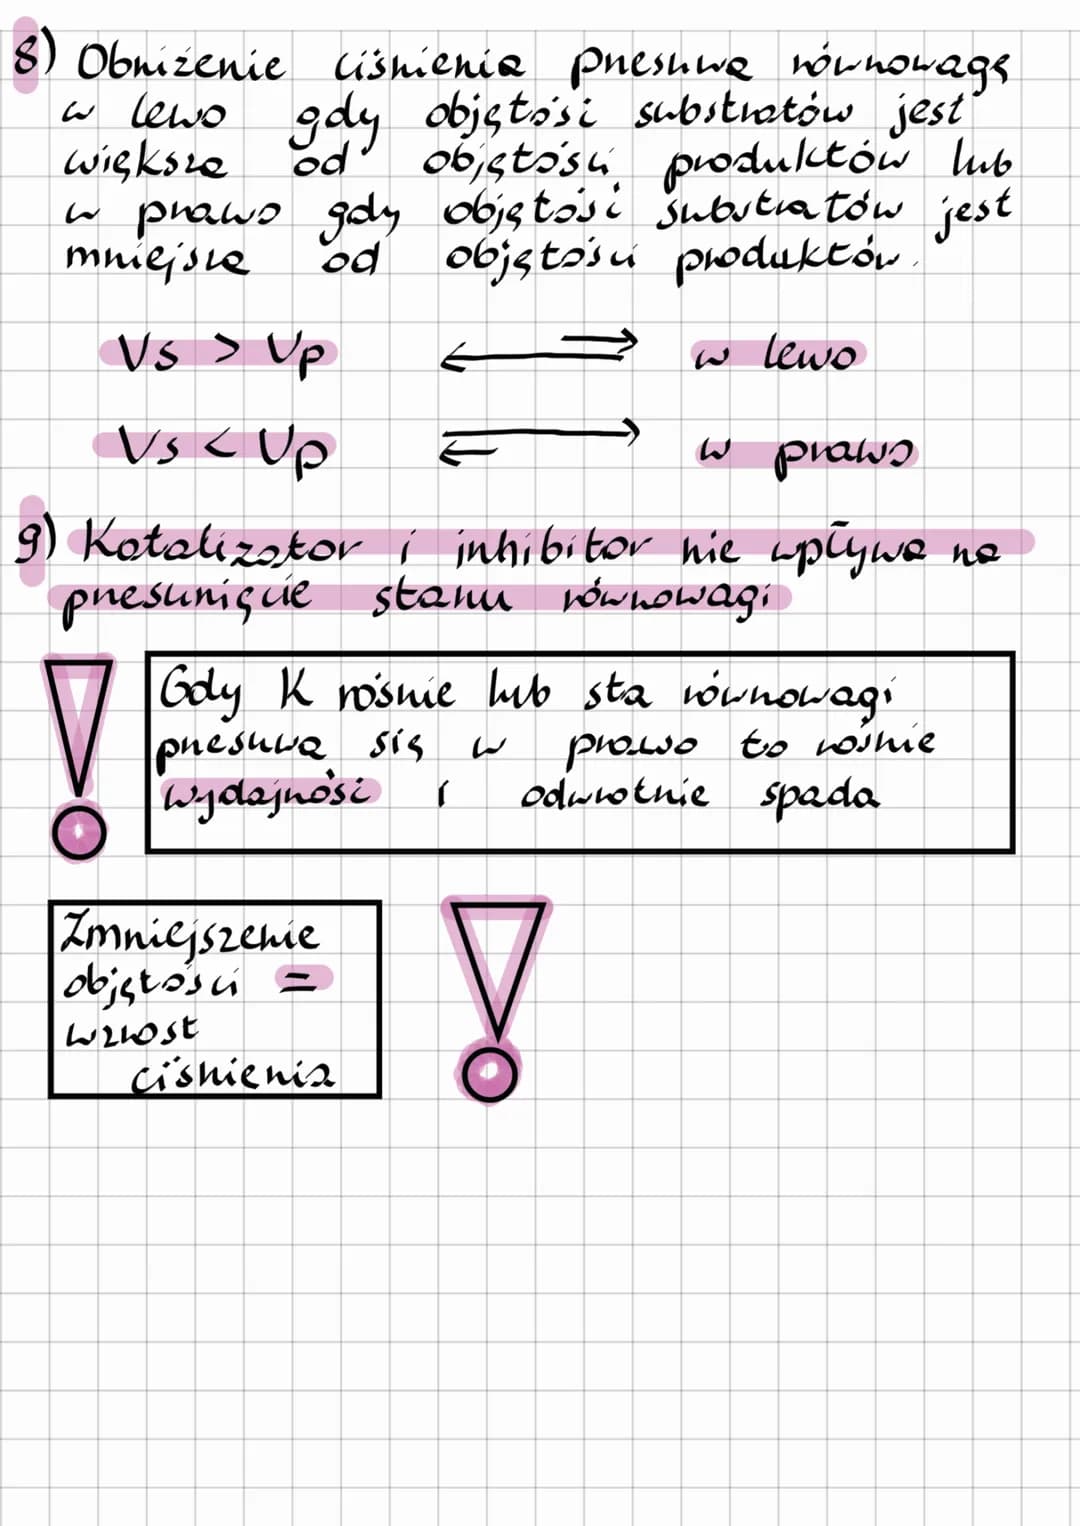 8) Obniżenie ciśnienia przesuwa równowagę
w lewo gdy objętość substratów jest
większa od objętości produktów lub
w prawo gdy objętość substratów jest
mniejsza od objętości produktów.
Vs > Vp ⇄ w lewo
Vs < Vp ⇄ w prawo
9) Katalizator i inhibitor nie wpływa na
przesunięcie stanu równowagi
Gdy K rośnie lub sta równowagi
przesuwa się w prawo to rośnie
wydajność i odwrotnie spada
Zmniejszenie
objętości =
wzrost
ciśnienia